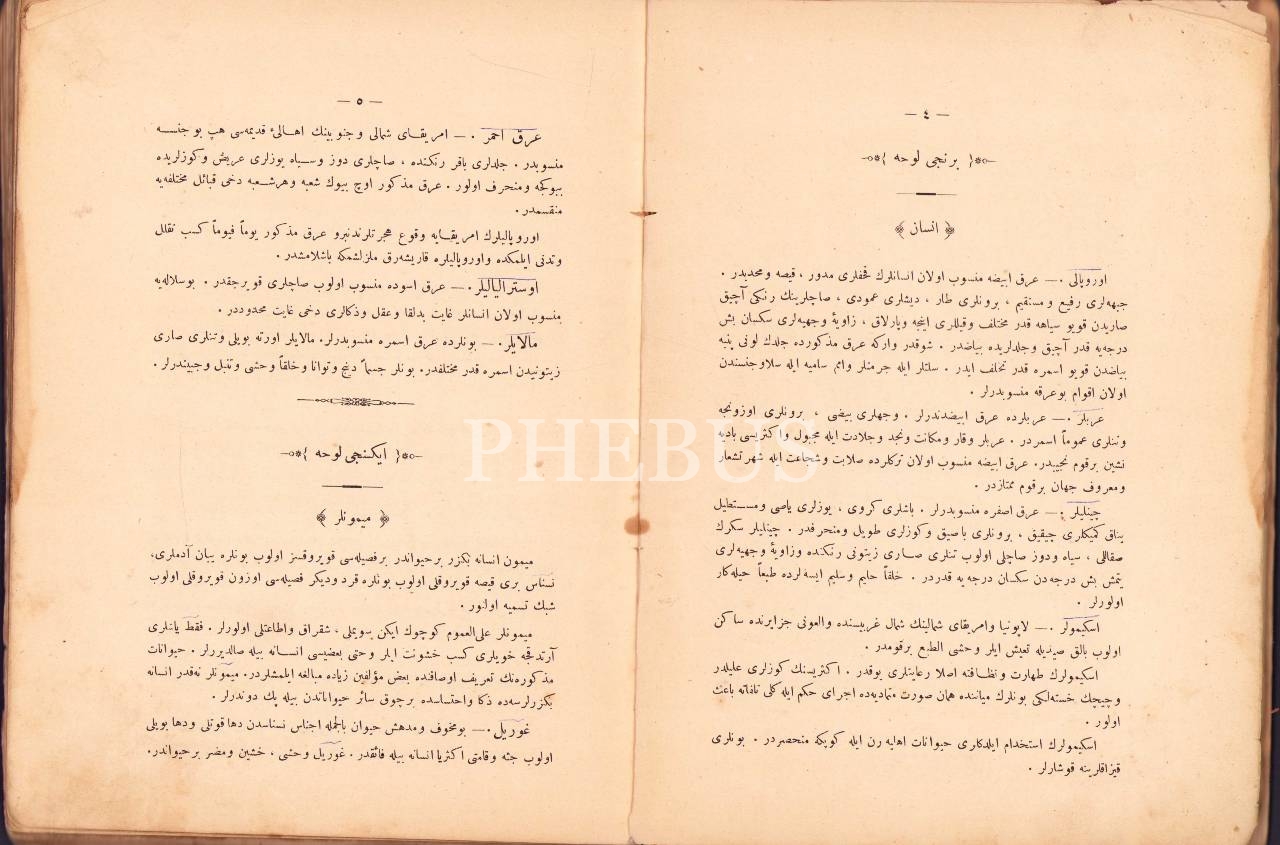 — ٤ —
برنجی لوحه
﴿ انسان ﴾
اوروپالی . — عرق ابیضه منسوب اولان انسانلرك قحفلری مدور ، قیصه ومحدبدر .
جبهه‌لری رفیع ومستقیم ، برونلری طار ، دیشلری عمودی ، صاچلرینك رنكی آچیق
صاریدن قویو سیاهه قدر مختلف وقیللری اینجه وپارلاق ، زاویهٔ وجهیه‌لری سكسان بش
درجه‌یه قدر آچیق وجلدلریده بیاضدر . شوقدر واركه عرق مذكورده جلدك لونی پنبه
بیاضدن قویو اسمره قدر تخلف ایدر . سلتلر ایله جرمنلر وامم سامیه ایله سلاوجنسندن
اولان اقوام بوعرقه منسوبدرلر .
عربلر . — عربلرده عرق ابیضدندرلر . وجهلری بیضی ، برونلری اوزونجه
وتنلری عموماً اسمردر . عربلر وقار ومكانت ونجد وجلادت ایله مجبول واكثریسی بادیه
نشین برقوم نجیبدر. عرق ابیضه منسوب اولان تركلرده صلابت وشجاعت ایله شهرتشعار
ومعروف جهان برقوم ممتازدر .
چینلیلر . — عرق اصفره منسوبدرلر . باشلری كروی ، یوزلری یاصی ومستطیل
یناق كمیكلری چیقیق ، برونلری باصیق وكوزلری طویل ومنحرفدر . چینلیلر سكرك
صقاللی ، سیاه ودوز صاچلی اولوب تنلری صاری زیتونی رنكنده وزاویهٔ وجهیه‌لری
یتمش بش درجه‌دن سكسان درجه‌یه قدردر . خلقاً حلیم وسلیم ایسه‌لرده طبعاً حیله‌كار
اولورلر .
اسكیمولر . — لاپونیا وامریقای شمالینك شمال غربیسنده والعونی جزایرنده ساكن
اولوب بالق صیدیله تعیش ایلر وحشی الطبع برقومدر .
اسكیمولرك طهارت ونظافته اصلا رعایتلری یوقدر . اكثریسنك كوزلری علیلدر
وچیچك خسته‌لكی بونلرك میاننده همان صورت متمادیه‌ده اجرای حكم ایله كلی تلفاته باعث
اولور .
اسكیمولرك استخدام ایلدكلری حیوانات اهلیه رن ایله كوپكه منحصردر . بونلری
قیزاقلرینه قوشارلر .
— ٥ —
عرق احمر . — امریقای شمالی وجنوبینك اهالیٔ قدیمه‌سی هپ بو جنسه
منسوبدر . جلدلری باقر رنكنده ، صاچلری دوز وسیاه یوزلری عریض وكوزلریده
بیوكجه ومنحرف اولور . عرق مذكور اوچ بیوك شعبه وهرشعبه دخی قبائل مختلفه‌یه
منقسمدر .
اوروپالیلرك امریقایه وقوع هجرتلرندنبرو عرق مذكور یوماً فیوماً كسب تقلل
وتدنی ایلمكده واوروپالیلره قاریشه‌رق ملزلشمكه باشلامشدر .
اوسترالیالیلر . — عرق اسوده منسوب اولوب صاچلری قویرجقدر . بوسلاله‌یه
منسوب اولان انسانلر غایت بدلقا وعقل وذكالری دخی غایت محدوددر .
مالایلر . — بونلرده عرق اسمره منسوبدرلر. مالایلر اورته بویلی وتنلری صاری
زیتونیدن اسمره قدر مختلفدر. بونلر جسماً دنج وتوانا وخلقاً وحشی وتنبل وجبیندرلر .
ایكنجی لوحه
﴿ میمونلر ﴾
میمون انسانه بكزر برحیواندر برفصیله‌سی قویروقسز اولوب بونلره یبان آدملری،
نسناس بری قیصه قویروقلی اولوب بونلره قرد ودیكر فصیله‌سی اوزون قویروقلی اولوب
شبك تسمیه اولنور .
میمونلر علی‌العموم كوچوك ایكن سویملی ، شقراق واطاعتلی اولورلر . فقط یاشلری
آرتدقجه خویلری كسب خشونت ایلر وحتی بعضیسی انسانه بیله صالدیررلر . حیوانات
مذكوره‌نك تعریف اوصافنده بعض مؤلفین زیاده مبالغه ایلمشلردر. میمونلر نه‌قدر انسانه
بكزرلرسه‌ده ذكا واحتساسده برچوق سائر حیواناتدن بیله پك دوندرلر .
غوریل . — بومخوف ومدهش حیوان بالجمله اجناس نسناسدن دهاقوتلی ودها بویلی
اولوب جثه وقامتی اكثریا انسانه بیله فائقدر . غوریل وحشی ، خشین ومضر برحیواندر.
PHEBUS